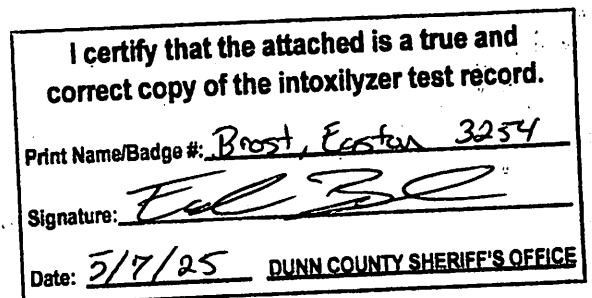 I certify that the attached is a true and
correct copy of the intoxilyzer test record.
Print Name/Badge #: Brost, Easton 3254
Signature:
Date: 5/7/25 DUNN COUNTY SHERIFF'S OFFICE